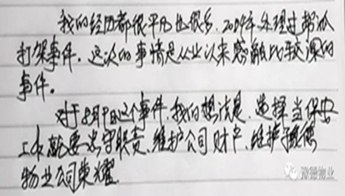 我的经历都很平凡也很多,2009年处理过帮派
打架事件。这次的事情是从业以来感触比较深的
事件。
对于8月9日这个事件,我的想法是,选择当保安
工作就要忠守职责、维护公司财产,维护
物业公司荣耀。
物业